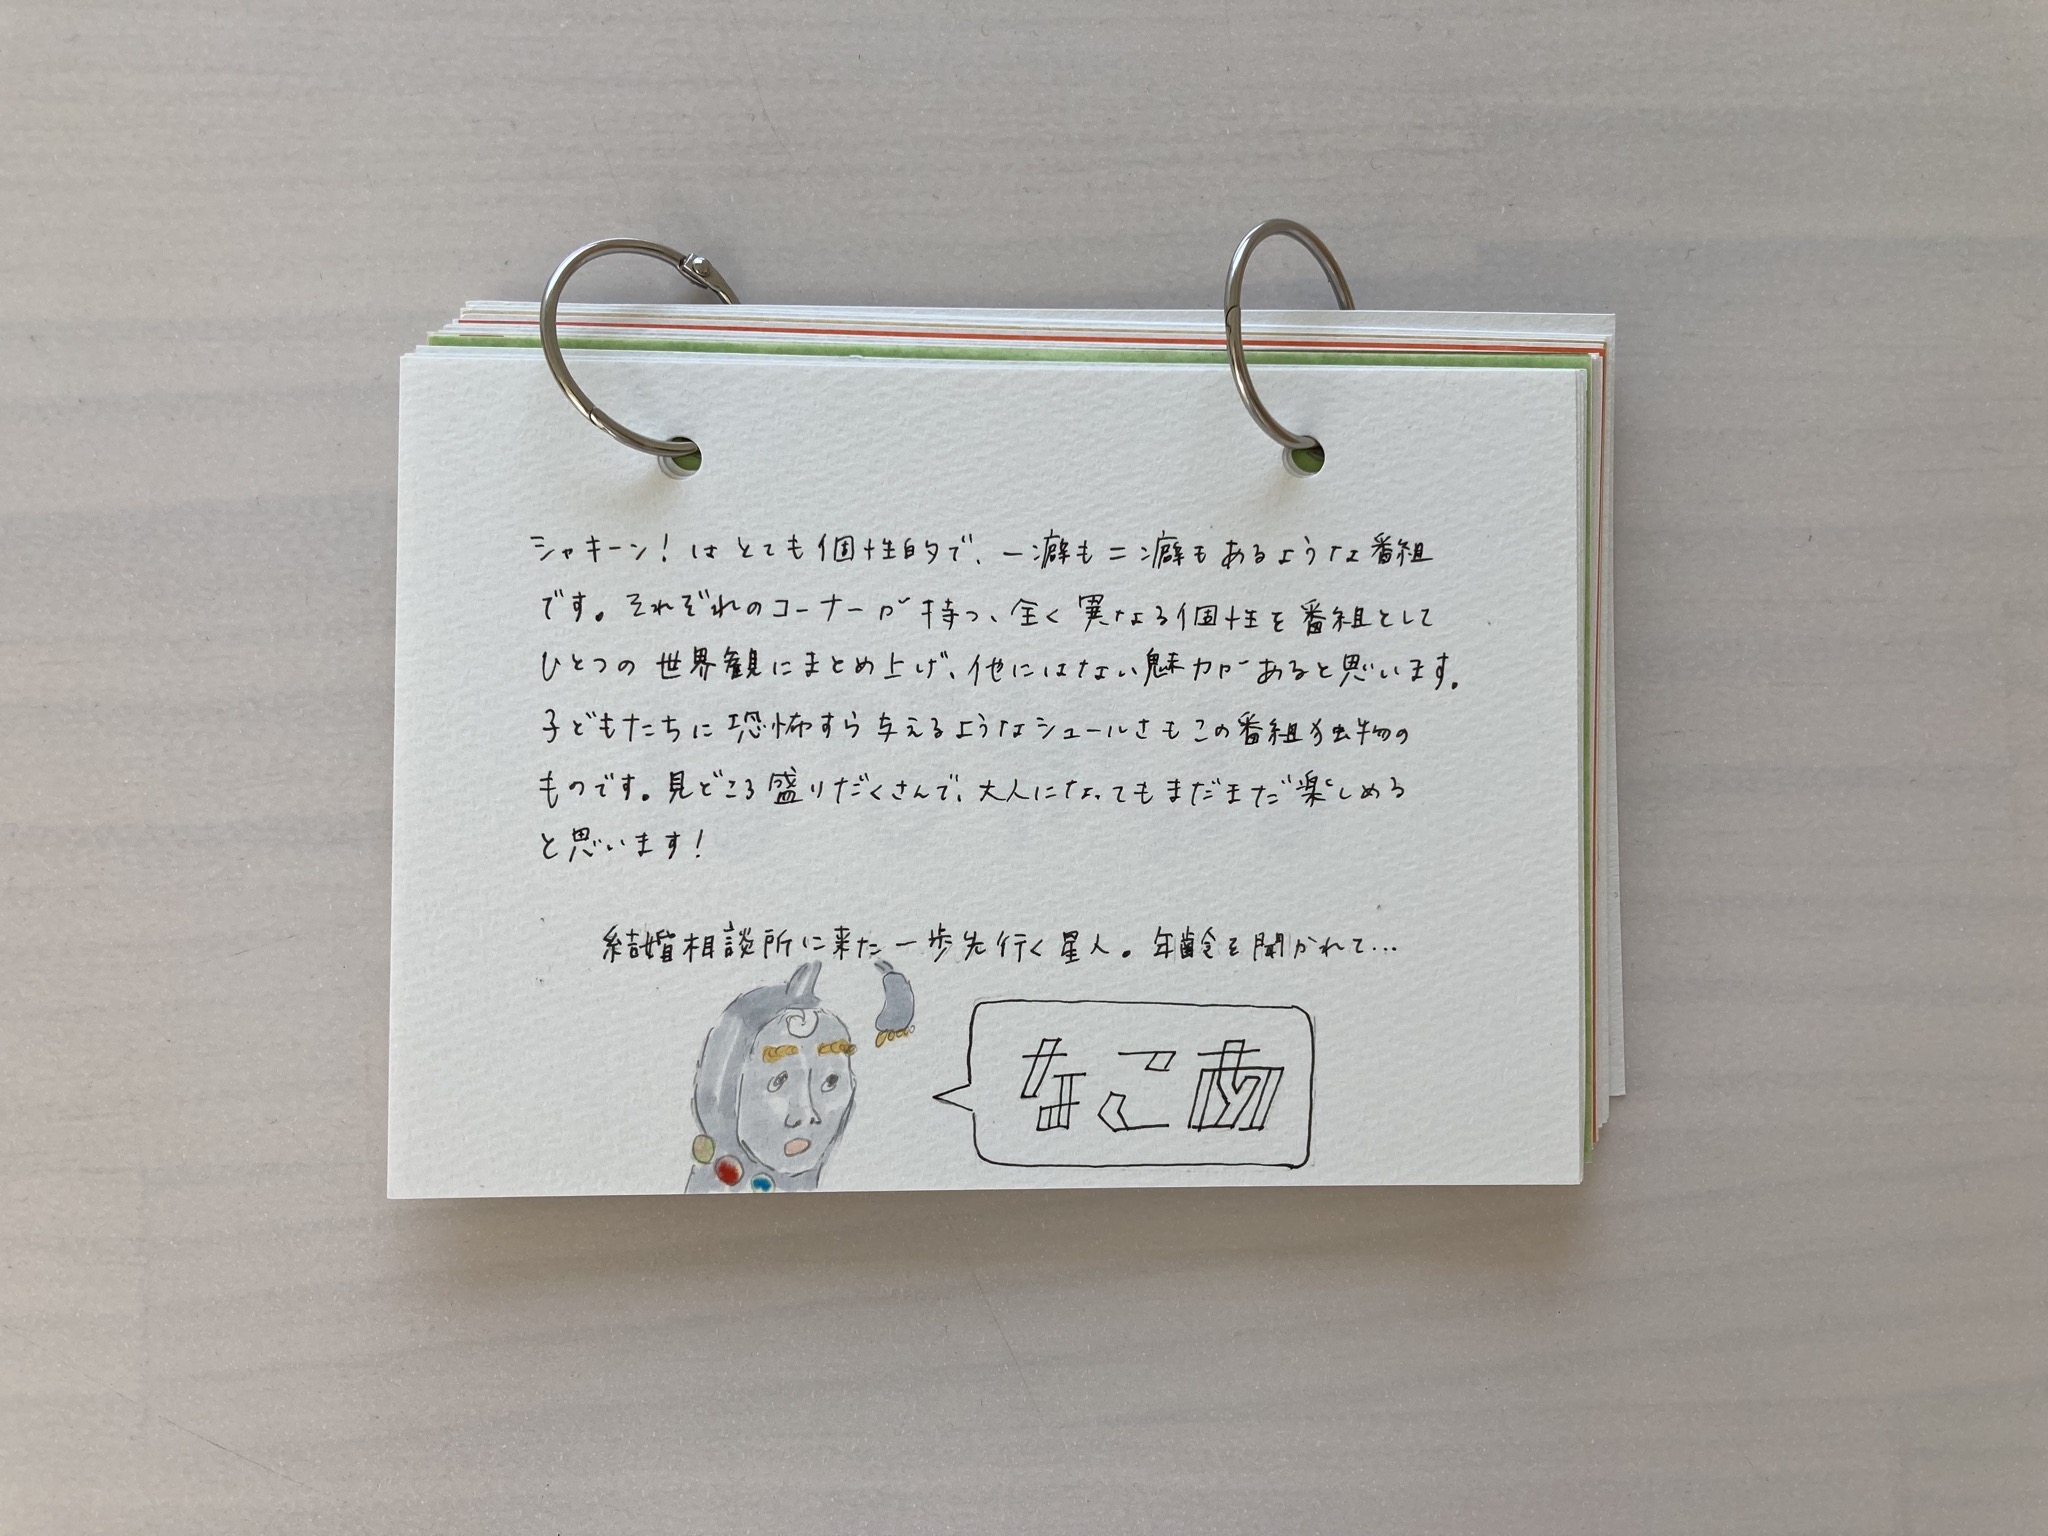 シャキーン!はとても個性的で、一癖も二癖もあるような番組
です。それぞれのコーナーが持つ、全く異なる個性を番組として
ひとつの世界観にまとめ上げ、他にはない魅力があると思います。
子どもたちに恐怖すら与えるようなシュールさもこの番組独物の
ものです。見どころ盛りだくさんで、大人になってもまだまだ楽しめる
と思います!
結婚相談所に来た一歩先行く星人。年齢を聞かれて…
なこあ